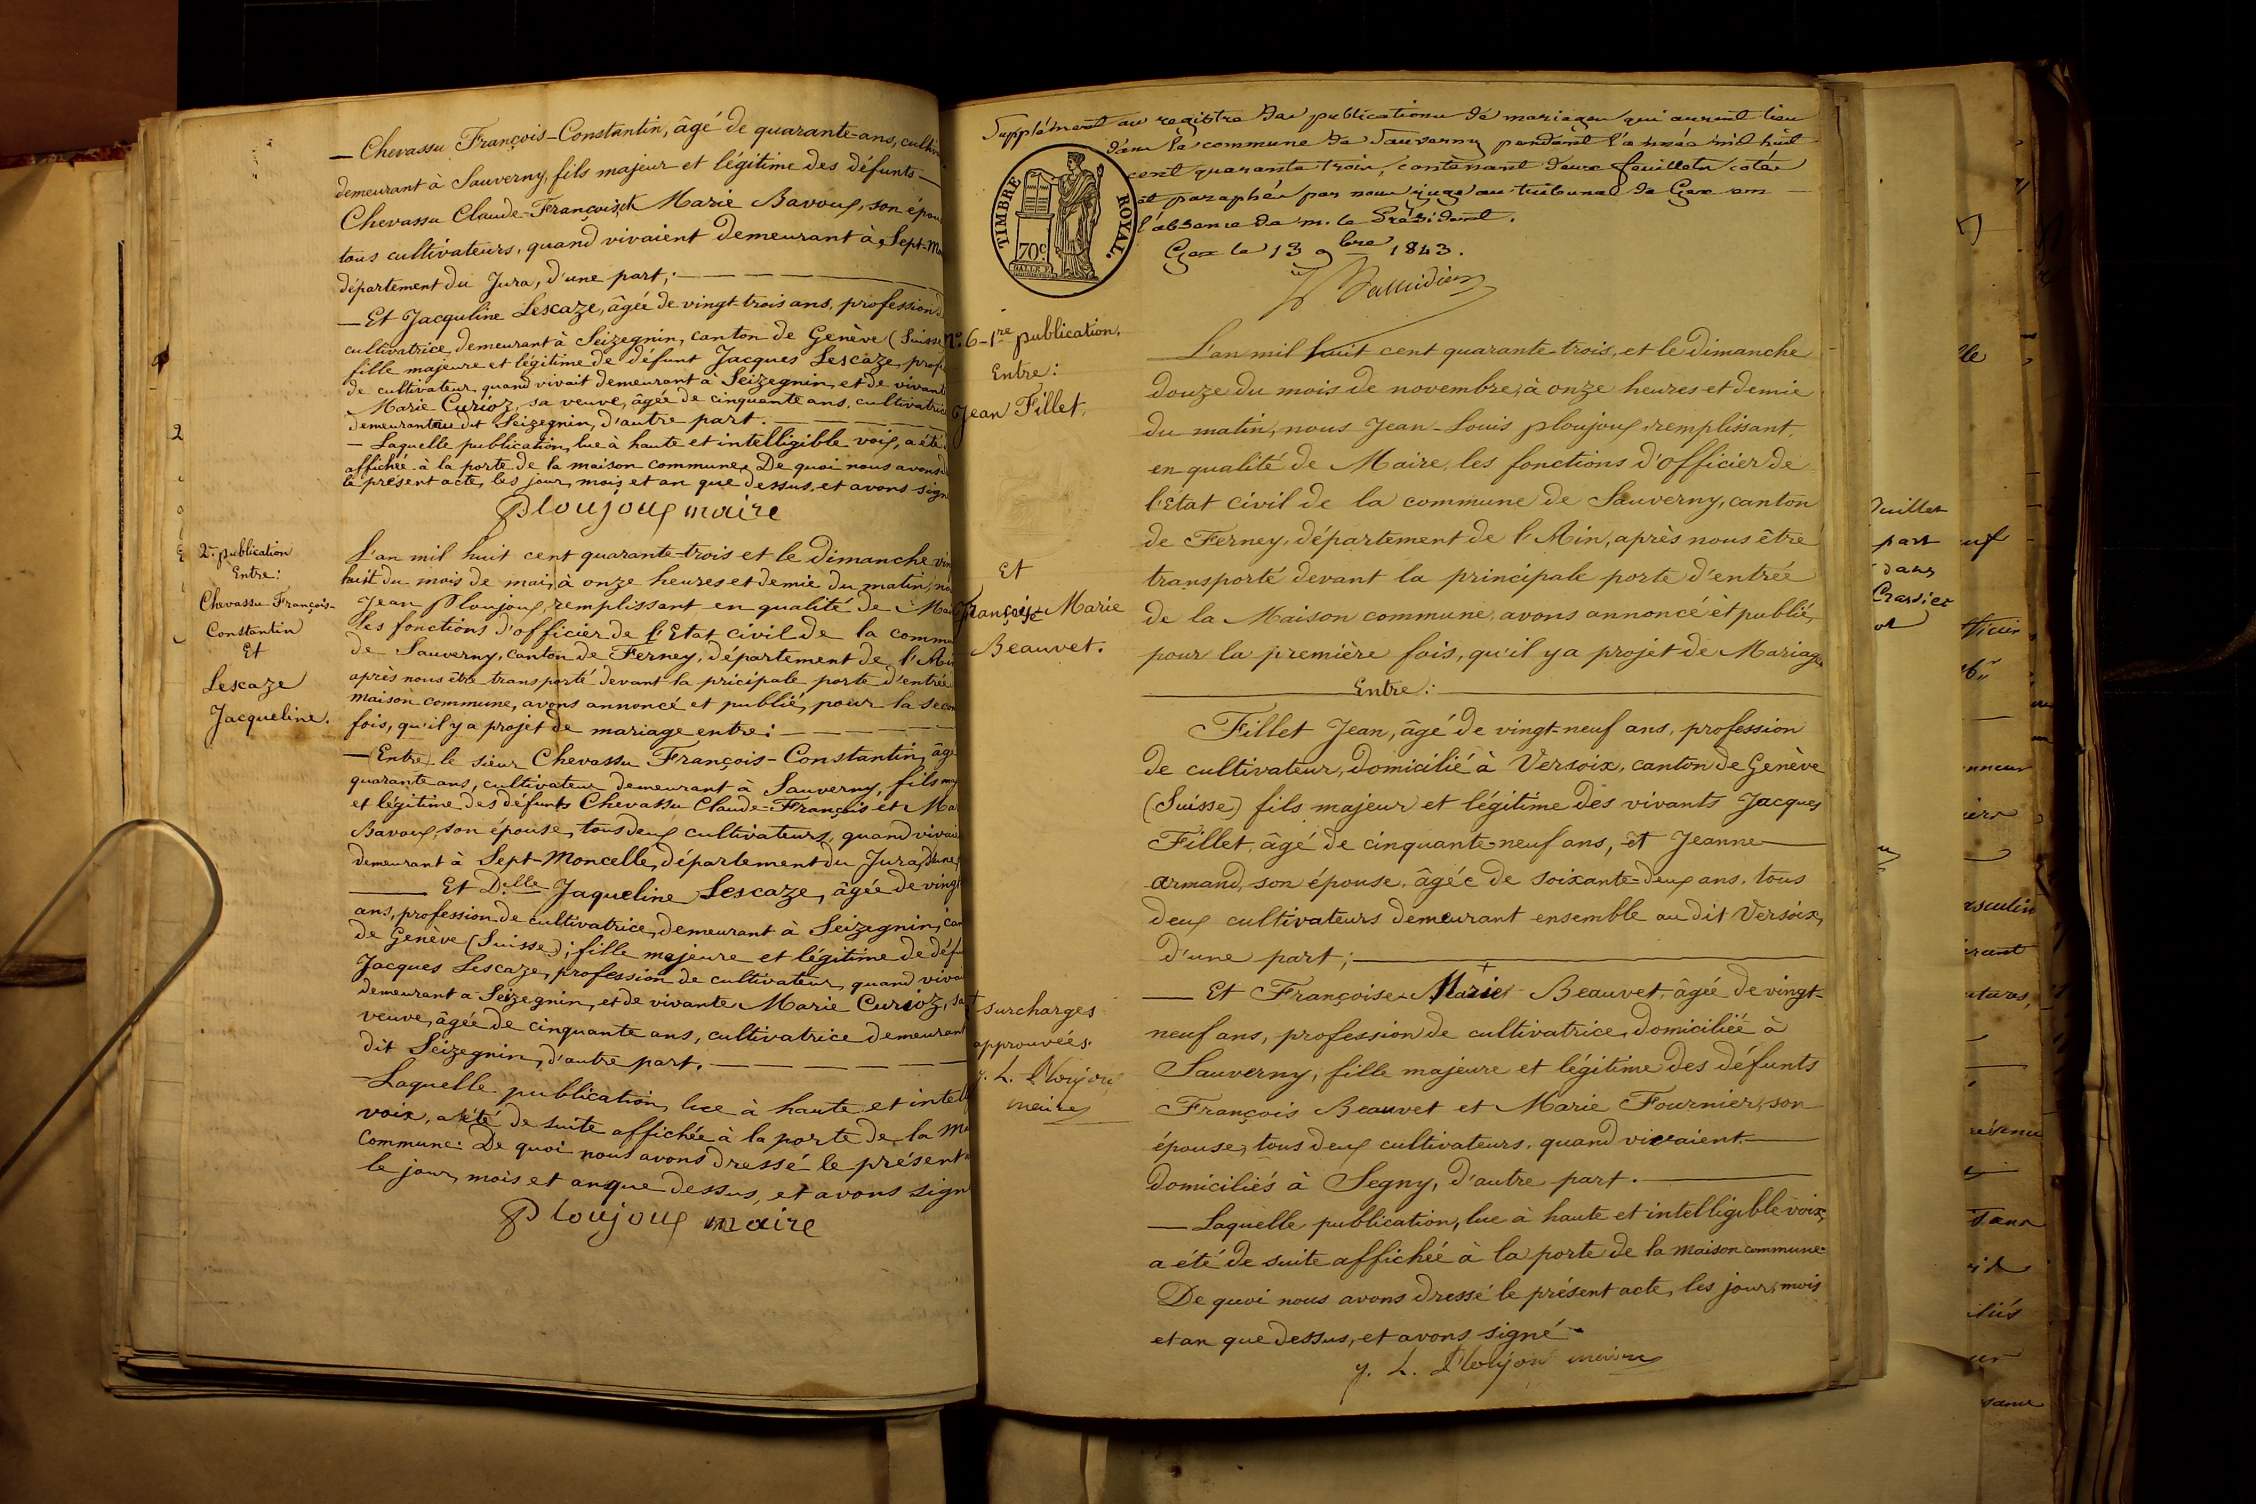 — Chevassu François-Constantin, âgé de quarante-ans, cultiv
demeurant à Sauverny, fils majeur et légitime des défunts —
Chevassu Claude-François et Marie Bavoux, son épou
tous cultivateurs, quand vivaient demeurant à Sept-Mo
département du Jura, d'une part; —
— Et Jacquline Lescaze, âgée de vingt-trois ans, profession d
cultivatrice, demeurant à Seizegnin, canton de Genève (Suisse
fille majeure et légitime de défunt Jacques Lescaze, prof
de cultivateur, quand vivait demeurant à Seizegnin, et de vivant
Marie Curioz, sa veuve, âgée de cinquante ans, cultivatrice
demeurant au dit Seizegnin, d'autre part. —
— Laquelle publication, lue à haute et intelligible voix, a été
affichée à la porte de la maison commune. De quoi nous avons d
le présent acte, les jour, mois et an que dessus, et avons sign
Ploujoux maire
2e publication
Entre:
Chevassu François-
Constantin
Et
Lescaze
Jacqueline.
L'an mil huit cent quarante-trois et le dimanche vin
huit du mois de mai, à onze heures et demie du matin, no
Jean Ploujoux, remplissant en qualité de Mai
les fonctions d'officier de l'Etat civil de la commu
de Sauverny, canton de Ferney, département de l'Ain
après nous être transporté devant la pricipale porte d'entrée
maison commune, avons annoncé et publié, pour la secon
fois, qu'il y a projet de mariage entre: —
— Entre le sieur Chevassu François-Constantin, âgé
quarante ans, cultivateur demeurant à Sauverny, fils maj
et légitime des défunts Chevassu Claude-François et Ma
Bavoux, son épouse, tous deux cultivateurs, quand vivai
demeurant à Sept-Moncelle, département du Jura, d'une
— Et D.lle Jaqueline Lescaze, âgée de vingt
ans, profession de cultivatrice, demeurant à Seizegnin, can
de Genève (Suisse); fille majeure et légitime de défu
Jacques Lescaze, profession de cultivateur, quand vivai
demeurant à Seizegnin, et de vivante Marie Curioz, sa
veuve, âgée de cinquante ans, cultivatrice demeurant
dit Seizegnin, d'autre part. —
Laquelle publication, lue à haute et intell
voix, a été de suite affichée à la porte de la Ma
commune. De quoi nous avons dressé le présent a
le jour, mois et an que dessus, et avons sign
Ploujoux maire
Supplément au registre des publications de mariages qui auront lieu
dans la commune de Sauverny pendant l'année mil huit
cent quarante trois, contenant deux feuillets cotés
et paraphés par nous juge au tribunal de Gex en —
l'absence de m. le Président.
Gex le 13 9bre 1843.
TIMBRE ROYAL.
70c
N° 6 - 1re publication.
Entre:
Jean Fillet,
Et
Françoise Marie
Beauvet.
L'an mil huit cent quarante-trois, et le dimanche
douze du mois de novembre, à onze heures et demie
du matin, nous Jean-Louis Ploujoux, remplissant,
en qualité de Maire, les fonctions d'officier de
l'Etat civil de la commune de Sauverny, canton
de Ferney, département de l'Ain, après nous être
transporté devant la principale porte d'entrée
de la Maison commune, avons annoncé et publié,
pour la première fois, qu'il y a projet de Mariage
Entre:
Fillet Jean, âgé de vingt-neuf ans, profession
de cultivateur, domicilié à Versoix, canton de Genève
(Suisse) fils majeur et légitime des vivants Jacques
Fillet, âgé de cinquante-neuf ans, et Jeanne —
Armand, son épouse, âgée de soixante-deux ans, tous
deux cultivateurs demeurant ensemble au dit Versoix,
d'une part; —
— Et Françoise Marie Beauvet, âgée de vingt-
neuf ans, profession de cultivatrice, domiciliée à
Sauverny, fille majeure et légitime des défunts
François Beauvet et Marie Fournier, son
épouse, tous deux cultivateurs, quand vivaient —
domiciliés à Segny, d'autre part. —
— Laquelle publication, lue à haute et intelligible voix,
a été de suite affichée à la porte de la maison commune.
De quoi nous avons dressé le présent acte, les jour, mois
et an que dessus, et avons signé.
J. L. Ploujoux maire
+ surcharges
approuvées.
J. L. Ploujoux
maire